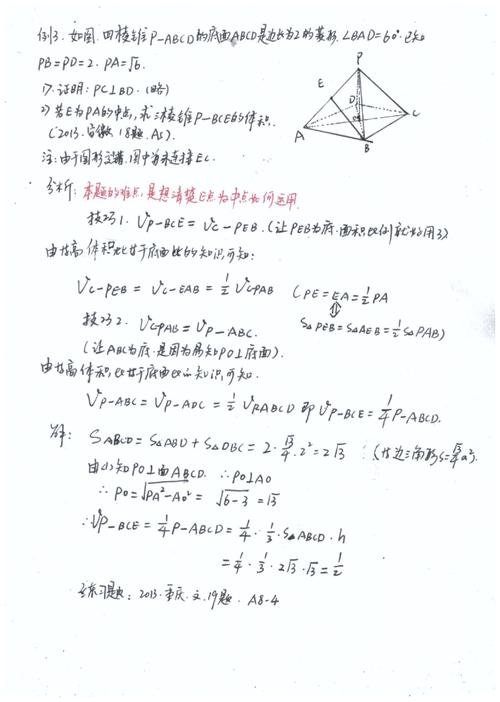 例3. 如图. 四棱锥P-ABCD的底面ABCD是边长为2的菱形. ∠BAD=60°. 已知
PB=PD=2. PA=√6.
1). 证明: PC⊥BD. (略)
2) 若E为PA的中点, 求三棱锥P-BCE的体积.
(2013. 安徽. 18题. A5).
注: 由于图形遮挡, 图中并未连接EC.
P
E
D
O
C
A
B
分析: 本题的难点, 是想清楚E点为中点如何运用
技巧1. VP-BCE = VC-PEB. (让PEB为底. 面积比例就好用了)
由等高体积比等于底面比的知识可知:
VC-PEB = VC-EAB = 1/2 VC-PAB (PE=EA=1/2 PA
⇕
S△PEB=S△AEB=1/2 S△PAB)
技巧2. VC-PAB = VP-ABC.
(让ABC为底. 是因为易知PO⊥底面).
由等高体积比等于底面比的知识可知.
VP-ABC = VP-ADC = 1/2 VP-ABCD 即 VP-BCE = 1/4 P-ABCD.
解: SABCD = S△ABD + S△DBC = 2·√3/4·2² = 2√3 (等边三角形S=√3/4 a²).
由(1)知PO⊥面ABCD. ∴PO⊥AO
∴ PO=√PA²-AO² = √6-3 = √3
∴VP-BCE = 1/4 P-ABCD = 1/4 · 1/3 · S△ABCD · h
= 1/4 · 1/3 · 2√3 · √3 = 1/2
练习题: 2013. 重庆. 文. 19题. A8-4